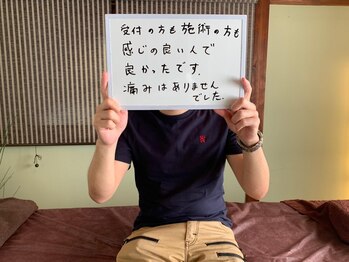 受付の方も施術の方も
感じの良い人で
良かったです。
痛みはありません
でした。